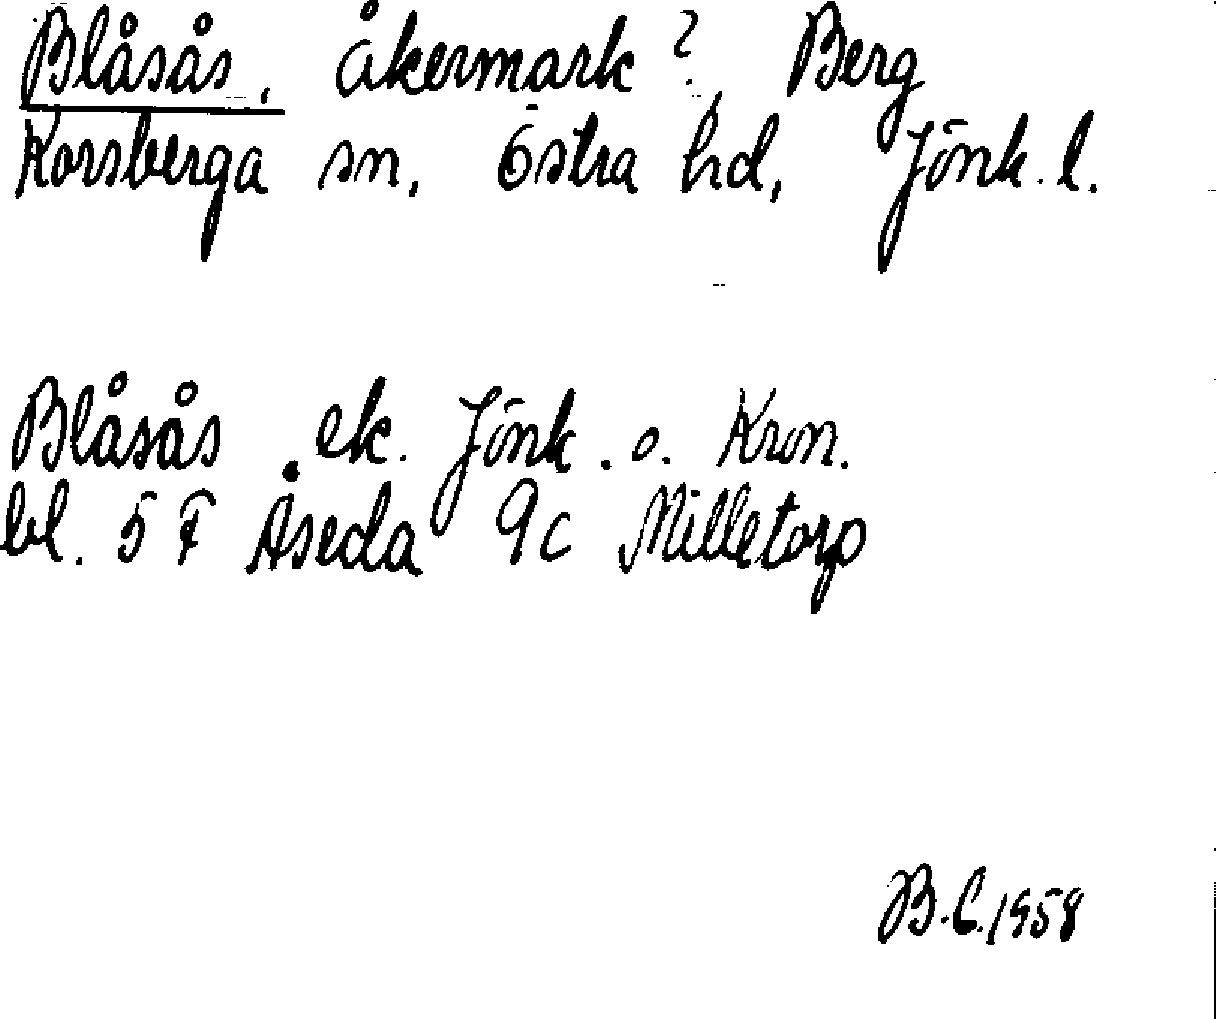 Blåsås, åkermark?, Berg
Korsberga sn, Östra hd, Jönk. l.
Blåsås . ek. Jönk. o. Kron.
bl. 5 F Åseda 9c Milletorp
B.C. 1958